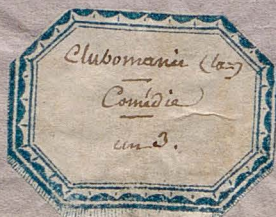 Clubomanie (la)
Comédie
en 3.